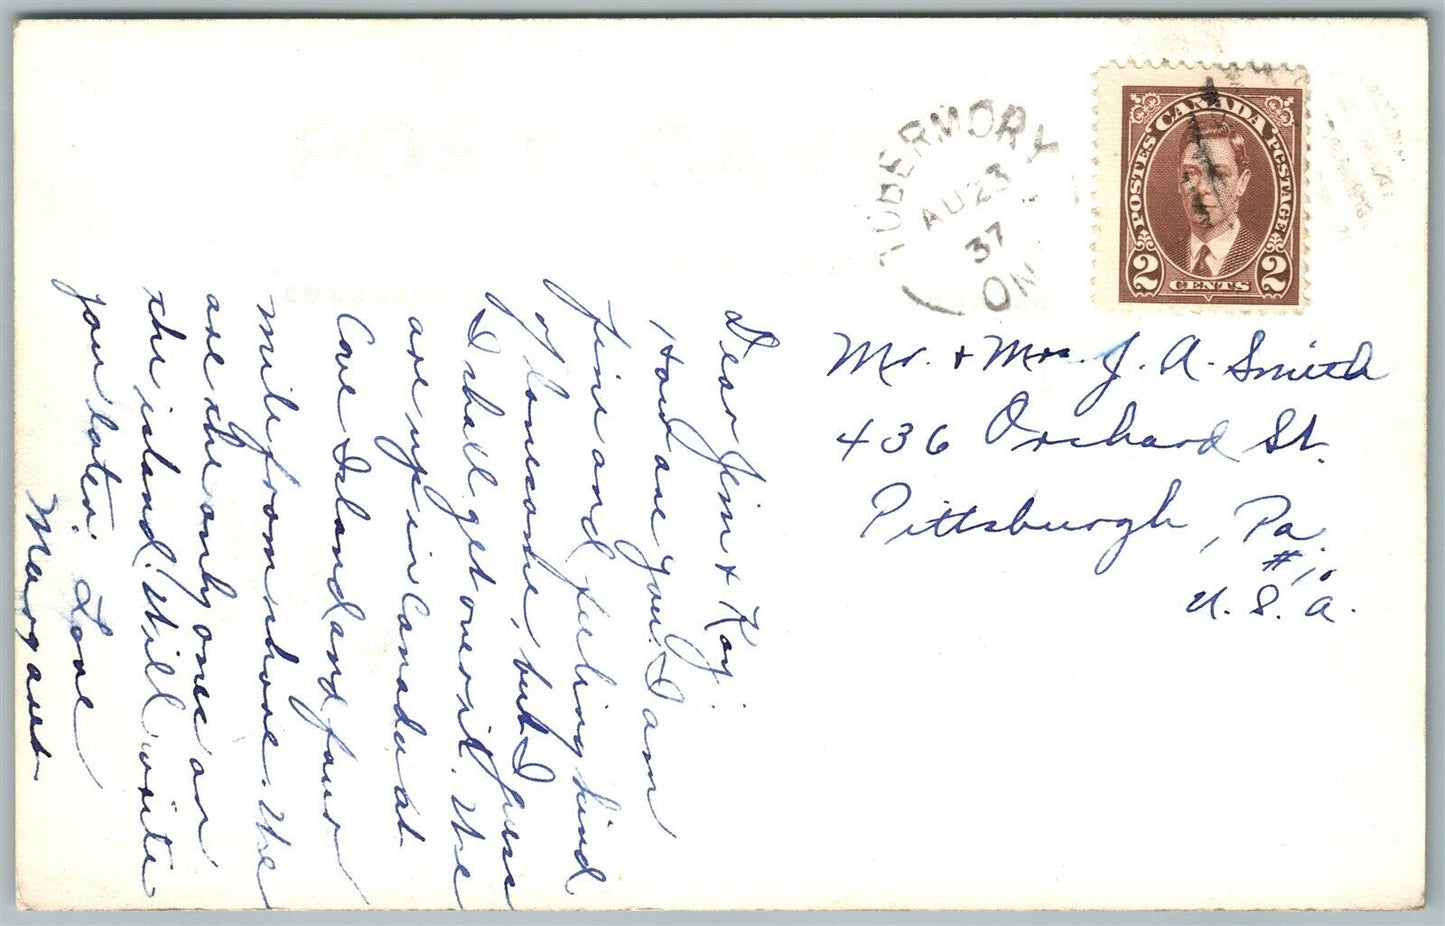 POST CARD
TOBERMORY
AU 23
37
ON
CANADA
POSTES POSTAGE
2 CENTS 2
Mr. + Mrs. J. A. Smith
436 Orchard St.
Pittsburgh, Pa.
#10
U. S. A.
Dear Jim + Kay:
How are you. I am
fine and feeling kind
of lonesome, but I guess
I shall get over it. We
are up in Canada at
Cove Island and four
miles from shore. We
are the only ones on
the island. Will write
you later. Love
Margaret